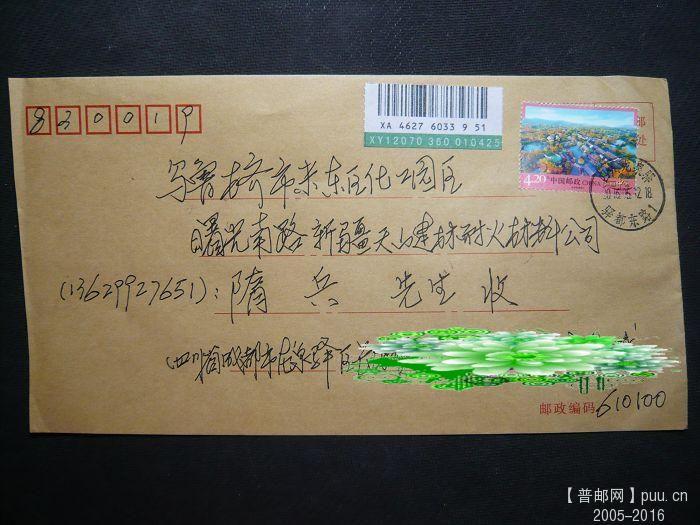 830019
XA 4627 6033 9 51
XY12070 360 010425
4.20元 中国邮政 CHINA
邮
处
乌鲁木齐市米东区化工园区
曙光南路新疆天山建材耐火材料公司
(13629927651): 隋兵 先生 收
四川省成都市龙泉驿区
邮政编码 610100
【普邮网】puu.cn
2005-2016